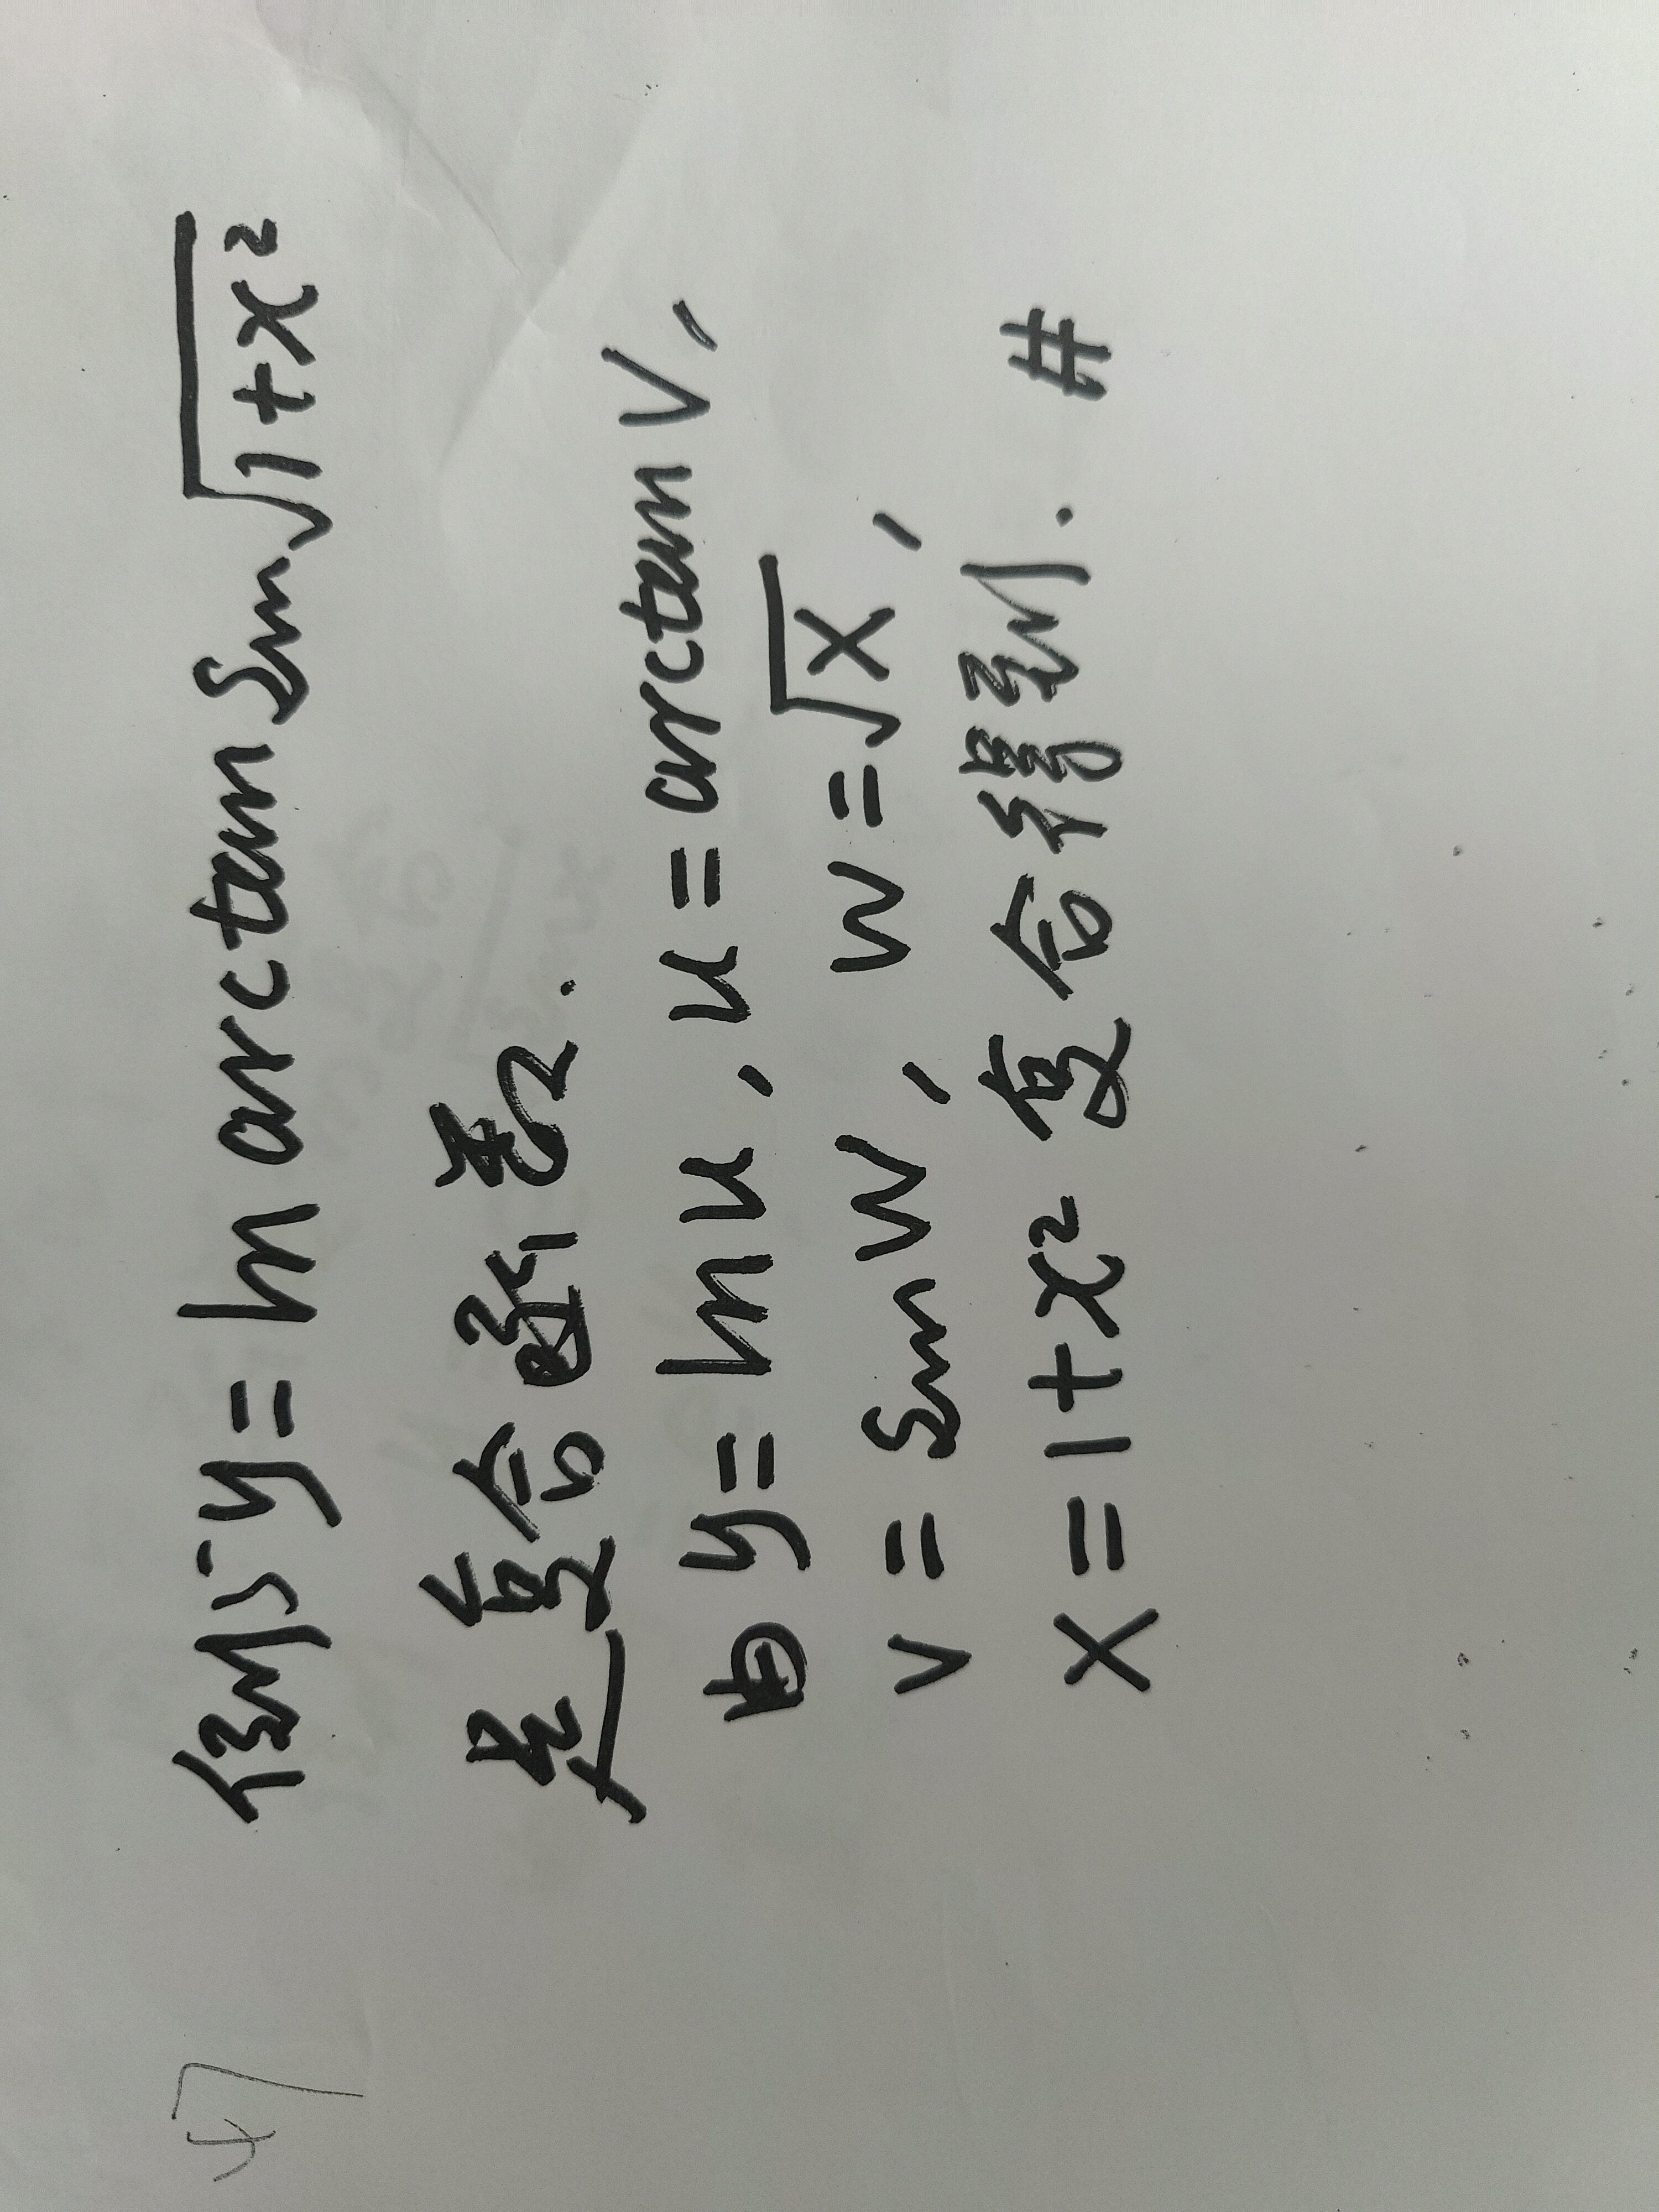 47
例5 y=ln arctan sin√(1+x²)
是复合函数.
由 y=ln u, u=arctan v,
v=sin w, w=√X,
X=1+x² 复合得到. #